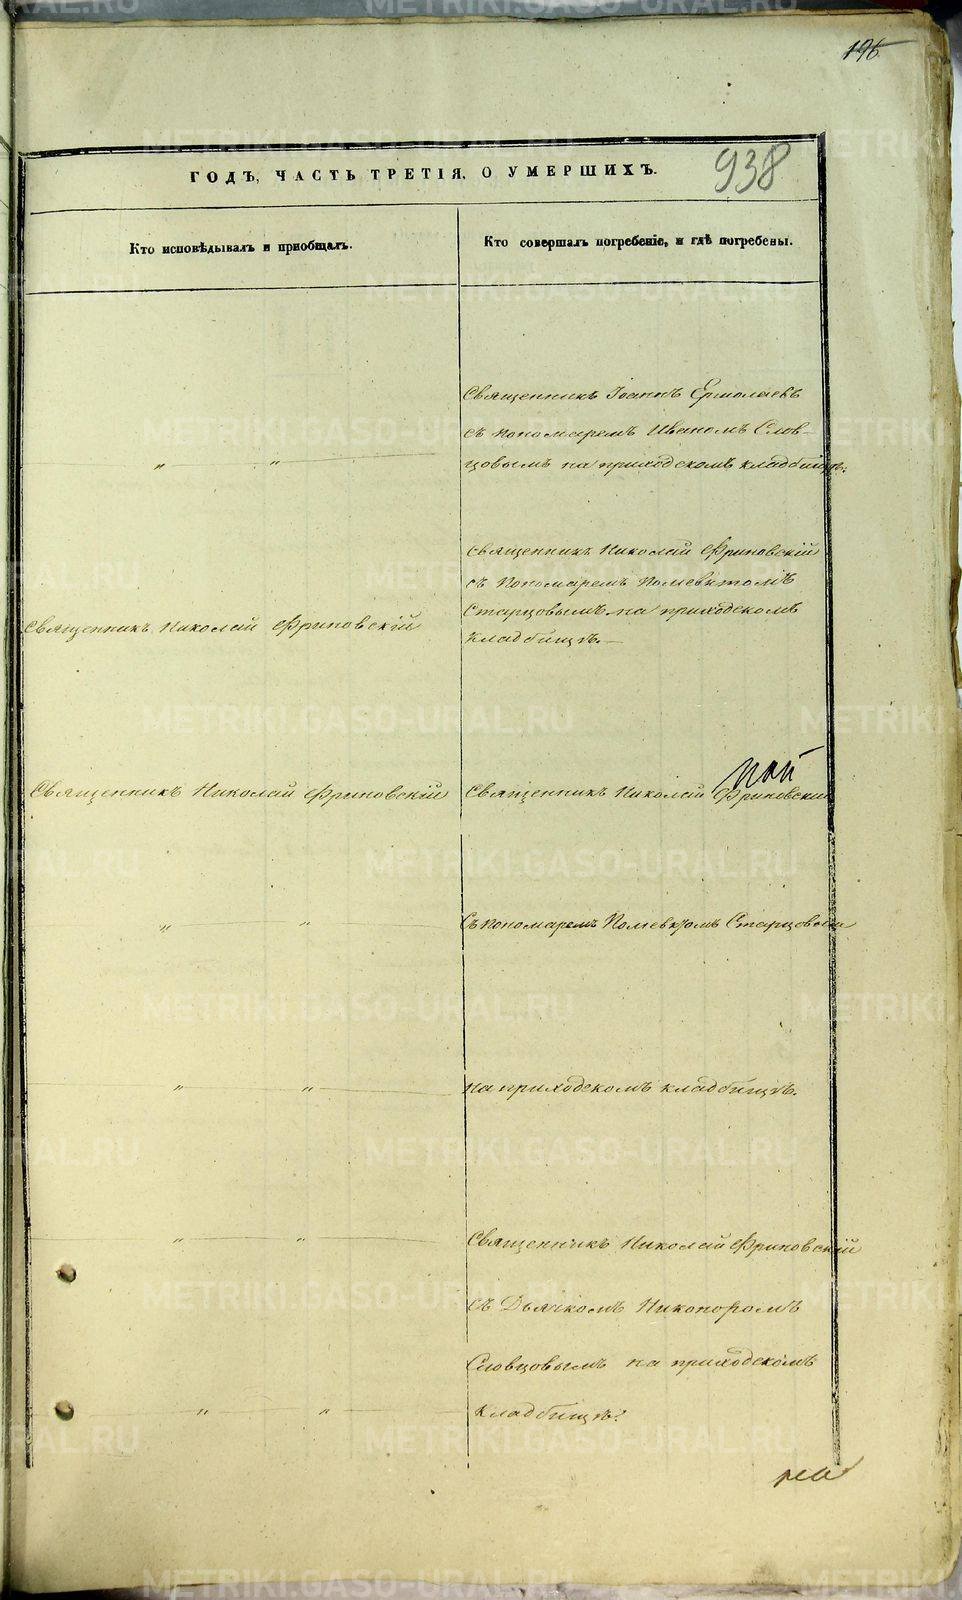 196
938
ГОДЪ, ЧАСТЬ ТРЕТІЯ, О УМЕРШИХЪ.
Кто исповѣдывалъ и пріобщалъ.
Кто совершалъ погребеніе, и гдѣ погребены.
Священникъ Іоаннъ Ермолаевъ
съ пономаремъ Иваномъ Слов-
цовымъ на приходскомъ кладбищѣ.
" "
Священникъ Николай Фриновскій
съ Пономаремъ Полиевктомъ
Старцовымъ на приходскомъ
кладбищѣ.
Священникъ Николай Фриновскій
Священникъ Николай Фриновскій
Священникъ Николай Фриновскій
" "
Съ пономаремъ Полиевктомъ Старцовым
" "
на приходскомъ кладбищѣ.
" "
Священникъ Николай Фриновскій
съ Дьячкомъ Никапоромъ
Словцовымъ на приходскомъ
" "
кладбищѣ.
METRIKI.GASO-URAL.RU